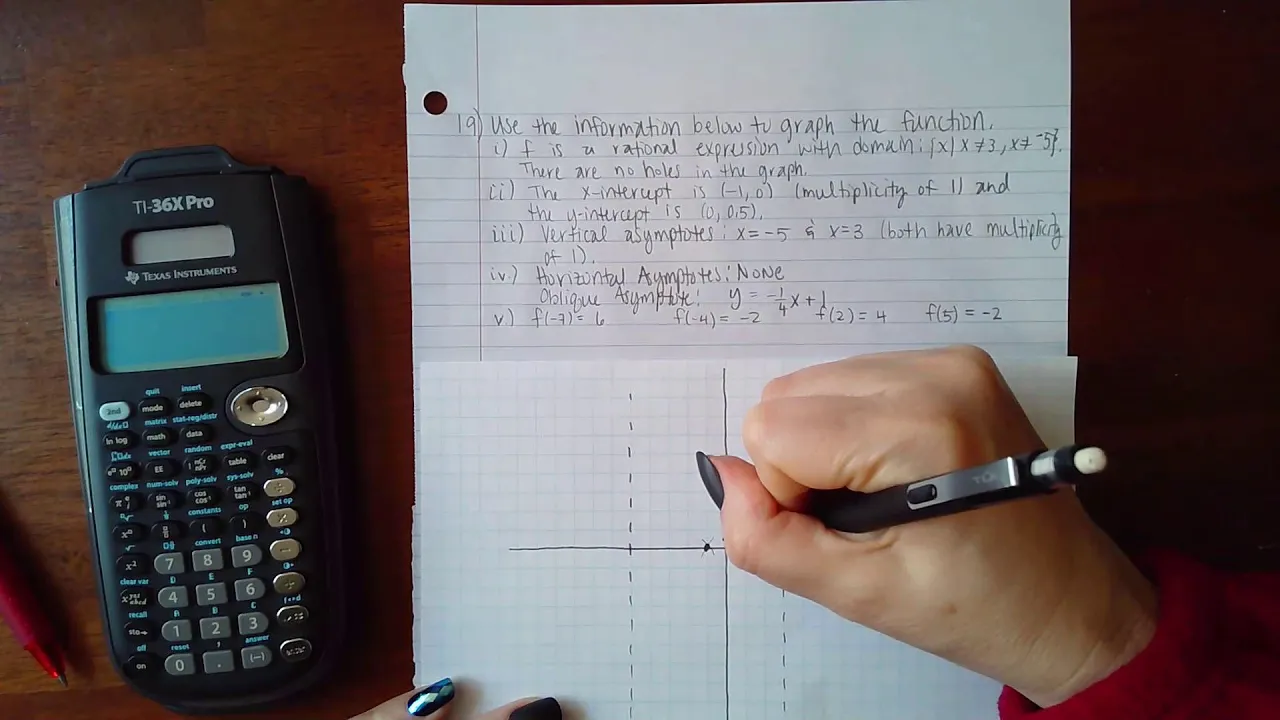 19) Use the information below to graph the function.
i) f is a rational expression with domain: {x| x ≠ 3, x ≠ -5}.
There are no holes in the graph.
ii) The x-intercept is (-1, 0) (multiplicity of 1) and
the y-intercept is (0, 0.5).
iii) Vertical asymptotes: x = -5 & x = 3 (both have multiplicity
of 1).
iv) Horizontal Asymptotes: NONE
Oblique Asymptote: y = -1/4 x + 1
v) f(-7) = 6 f(-4) = -2 f(2) = 4 f(5) = -2
TI-36X Pro
TEXAS INSTRUMENTS
quit insert
2nd mode delete
matrix stat-reg/distr
ln log math data
vector random expr-eval
EE nCr nPr table clear
complex num-solv poly-solv sys-solv %
π sin sin⁻¹ cos cos⁻¹ tan tan⁻¹
constants op set op
( )
convert base n
x² 7 8 9 −
clear var D E F
4 5 6
recall A B C
sto→ 1 2 3
off reset , answer
on 0 . (−)